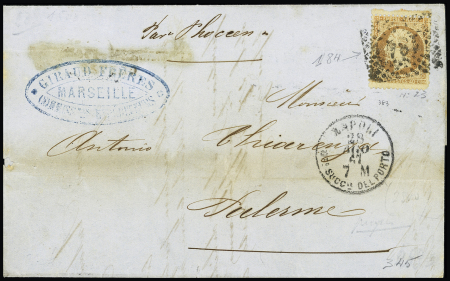 Par Phocéen
184
GIRAUD FRÈRES
MARSEILLE
Monsieur
Antonio
Palerme
NAPOLI
28
AGO
7 M
SUCCU DEL PORTO
345